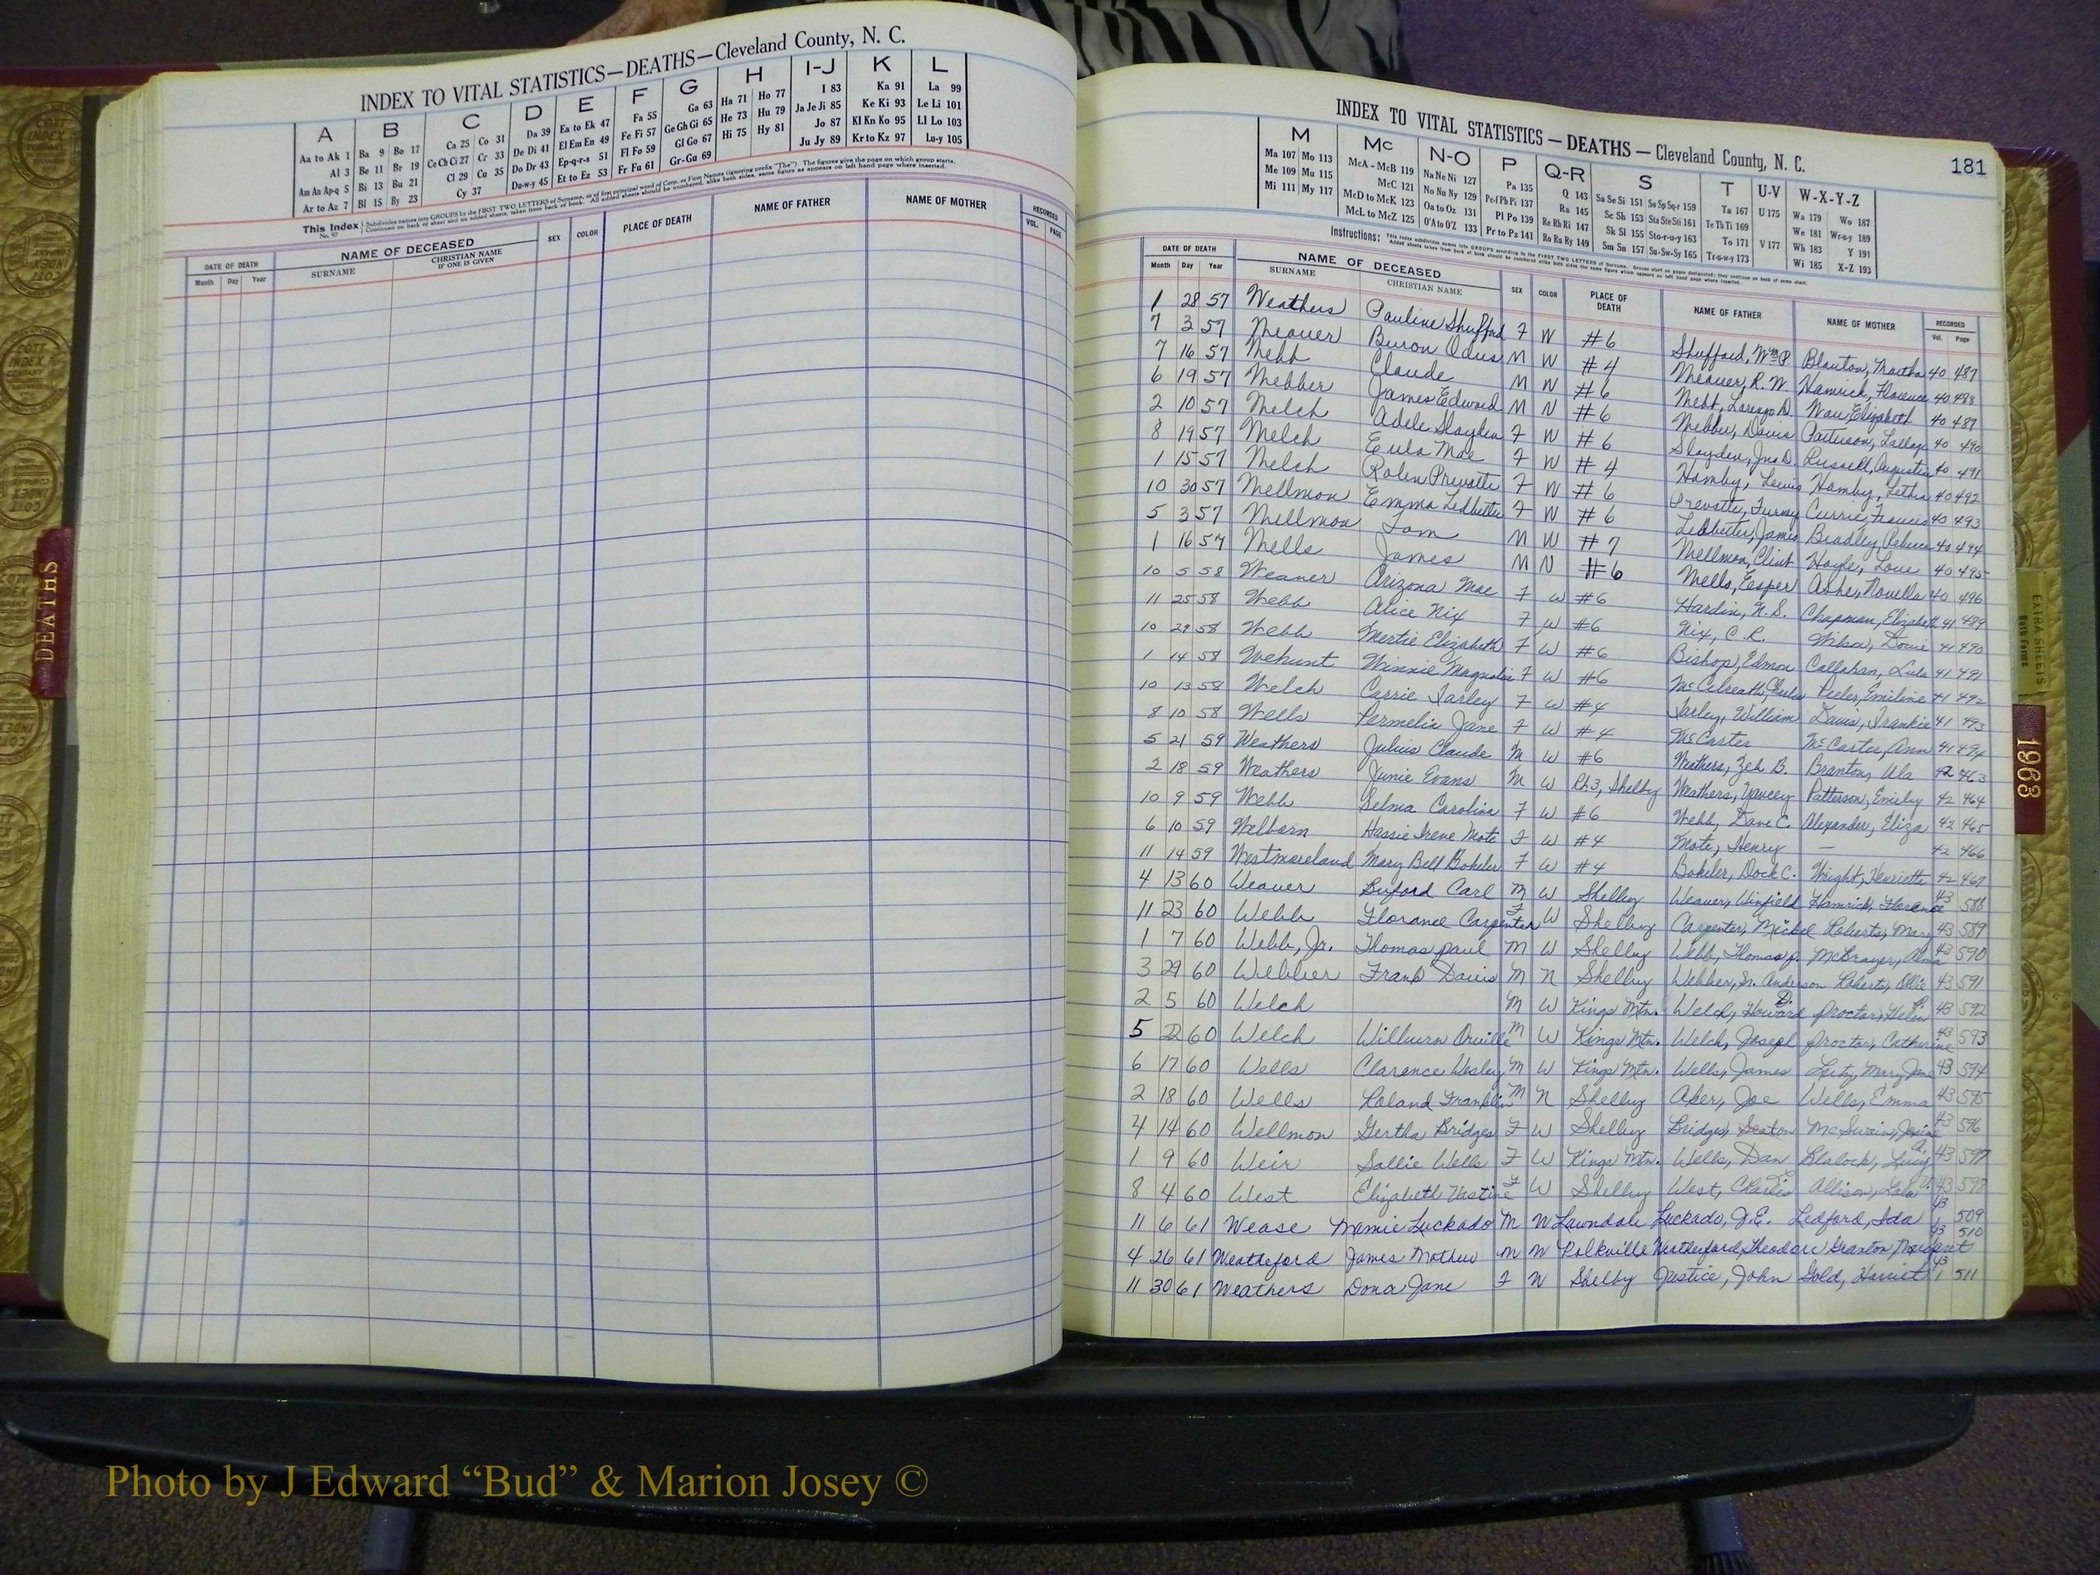 INDEX TO VITAL STATISTICS—DEATHS—Cleveland County, N. C.
A B C D E F G H I-J K L
Aa to Ak 1 Ba 9 Bo 17 Ca 25 Co 31 Da 39 Ea to Ek 47 Fa 55 Ga 63 Ha 71 Ho 77 I 83 Ka 91 La 99
Al 3 Be 11 Br 19 Ce Ch Ci 27 Cr 33 De Di 41 El Em En 49 Fe Fi 57 Ge Gh Gi 65 He 73 Hu 79 Ja Je Ji 85 Ke Ki 93 Le Li 101
Am An Ap-q 5 Bi 13 Bu 21 Cl 29 Cu 35 Do Dr 43 Ep-q-r-s 51 Fl Fo 59 Gl Go 67 Hi 75 Hy 81 Jo 87 Kl Kn Ko 95 Ll Lo 103
Ar to Az 7 Bl 15 By 23 Cy 37 Du-w-y 45 Et to Ez 53 Fr Fu 61 Gr-Gu 69 Ju Jy 89 Kr to Kz 97 Lu-y 105
This Index
DATE OF DEATH NAME OF DECEASED SEX COLOR PLACE OF DEATH NAME OF FATHER NAME OF MOTHER RECORDED
Month Day Year SURNAME CHRISTIAN NAME IF ONE IS GIVEN VOL. PAGE
DEATHS
INDEX TO VITAL STATISTICS — DEATHS — Cleveland County, N. C. 181
M Mc N-O P Q-R S T U-V W-X-Y-Z
Ma 107 Mo 113 McA - McB 119 Na Ne Ni 127 Pa 135 Q 143 Sa Se Si 151 So Sp Sq-r 159 Ta 167 U 175 Wa 179 Wo 187
Me 109 Mu 115 McC 121 No Nu Ny 129 Pe-f Ph Pi 137 Ra 145 Sc Sh 153 Sta Ste Sti 161 Te Th Ti 169 We 181 Wr-u-y 189
Mi 111 My 117 McD to McK 123 Oa to Oz 131 Pl Po 139 Re Rh Ri 147 Sk Sl 155 Sto-r-u-y 163 To 171 V 177 Wh 183 Y 191
McL to McZ 125 O'A to O'Z 133 Pr to Pz 141 Ro Ru Ry 149 Sm Sn 157 Su-Sw-Sy 165 Tr-u-w-y 173 Wi 185 X-Z 193
Instructions:
DATE OF DEATH NAME OF DECEASED SEX COLOR PLACE OF DEATH NAME OF FATHER NAME OF MOTHER RECORDED
Month Day Year SURNAME CHRISTIAN NAME Vol. Page
1 28 57 Weathers Pauline Shufford F W #6 Shufford, Wm P. Blanton, Martha 40 487
7 3 57 Weaver Buron Odus M W #4 Weaver, R. W. Hamrick, Florence 40 488
7 16 57 Webb Claude M W #6 Webb, Lorenzo D. Elizabeth 40 489
6 19 57 Webber James Edward M N #6 Webber, Davis Patterson, 40 490
2 10 57 Welch Adele Slayden F W #6 Slayden, Jno D. Russell, Augustia 40 491
8 19 57 Welch Eula Mae F W #4 Hamby, Lewis Hamby, Letha 40 492
1 15 57 Welch Prevatte F W #6 Prevatte, Furney Currie, Francis 40 493
10 30 57 Wellmon Emma Ledbetter F W #6 Ledbetter, James Bradley, Rebecca 40 494
5 3 57 Wellmon Tom M W #7 Wellmon, Clint Hoyle, Love 40 495
1 16 57 Wells James M N #6 Wells, Esper Ashe, Novella 40 496
10 5 58 Weaver Arizona Mae F W #6 Hardin, N. S. Chapman, Elizabeth 41 489
11 25 58 Webb Alice Nix F W #6 Nix, C. R. Wilson, Dovie 41 490
10 29 58 Webb Mertie Elizabeth F W #6 Bishop, Edmon Callahan, Lula 41 491
1 14 58 Wehunt Winnie Magnolia F W #6 McCelreath, Charles Peeler, Emiline 41 492
10 13 58 Welch Carrie Farley F W #4 Farley, William Davis, Frankie 41 493
8 10 58 Wells Permelia Jane F W #4 McCarter McCarter, Ann 41 494
5 21 59 Weathers Julius Claude M W #6 Weathers, Zeb B. Branton, Ula 42 463
2 18 59 Weathers Junie Evans M W Rt.3, Shelby Weathers, Yancey Patterson, Emily 42 464
10 9 59 Webb Selma Caroline F W #6 Webb, Dave C. Alexander, Eliza 42 465
6 10 59 Welborn Hassie Irene Mote F W #4 Mote, Henry — 42 466
11 14 59 Westmoreland Mary Bell Bokeler F W #4 Bokeler, Dock C. Wright, Henrietta 42 467
4 13 60 Weaver Buford Carl M W Shelby Weaver, Winfield Hamrick, Florence 43 588
11 23 60 Webb Florance Carpenter F W Shelby Carpenter, Michel Roberts, Mary 43 589
1 7 60 Webb, Jr. Thomas paul M W Shelby Webb, Thomas p. McBrayer, Alma 43 590
3 29 60 Webber Frank Davis M N Shelby Webber, Sr. Anderson Roberts, Ollie 43 591
2 5 60 Welch M W Kings Mtn. Welch, Howard D. Proctor, Helen 43 592
5 22 60 Welch Wilburn Orville M W Kings Mtn. Welch, Joseph Proctor, Catherine 43 593
6 17 60 Wells Clarence Wesley M W Kings Mtn. Wells, James Lutz, Mary Jane 43 594
2 18 60 Wells Roland Franklin M N Shelby Aker, Joe Wells, Emma 43 595
4 14 60 Wellmon Gertha Bridges F W Shelby Bridges, Seaton McSwain, 43 596
1 9 60 Weir Sallie Wells F W Kings Mtn. Wells, Dan Blalock, Lucy 43 597
8 4 60 West Elizabeth Vastine F W Shelby West, Charlie Allison, 43 598
11 6 61 Wease Mamie Luckado M W Lawndale Luckado, J.E. Ledford, Ida 43 509
4 26 61 Weatheford James Mathew M W Polkville Weatherford, Theodore Branton, Margaret 43 510
11 30 61 Weathers Dona Jane F W Shelby Justice, John Gold, Harriet 43 511
EXTRA SHEETS
1968
Photo by J Edward “Bud” & Marion Josey ©